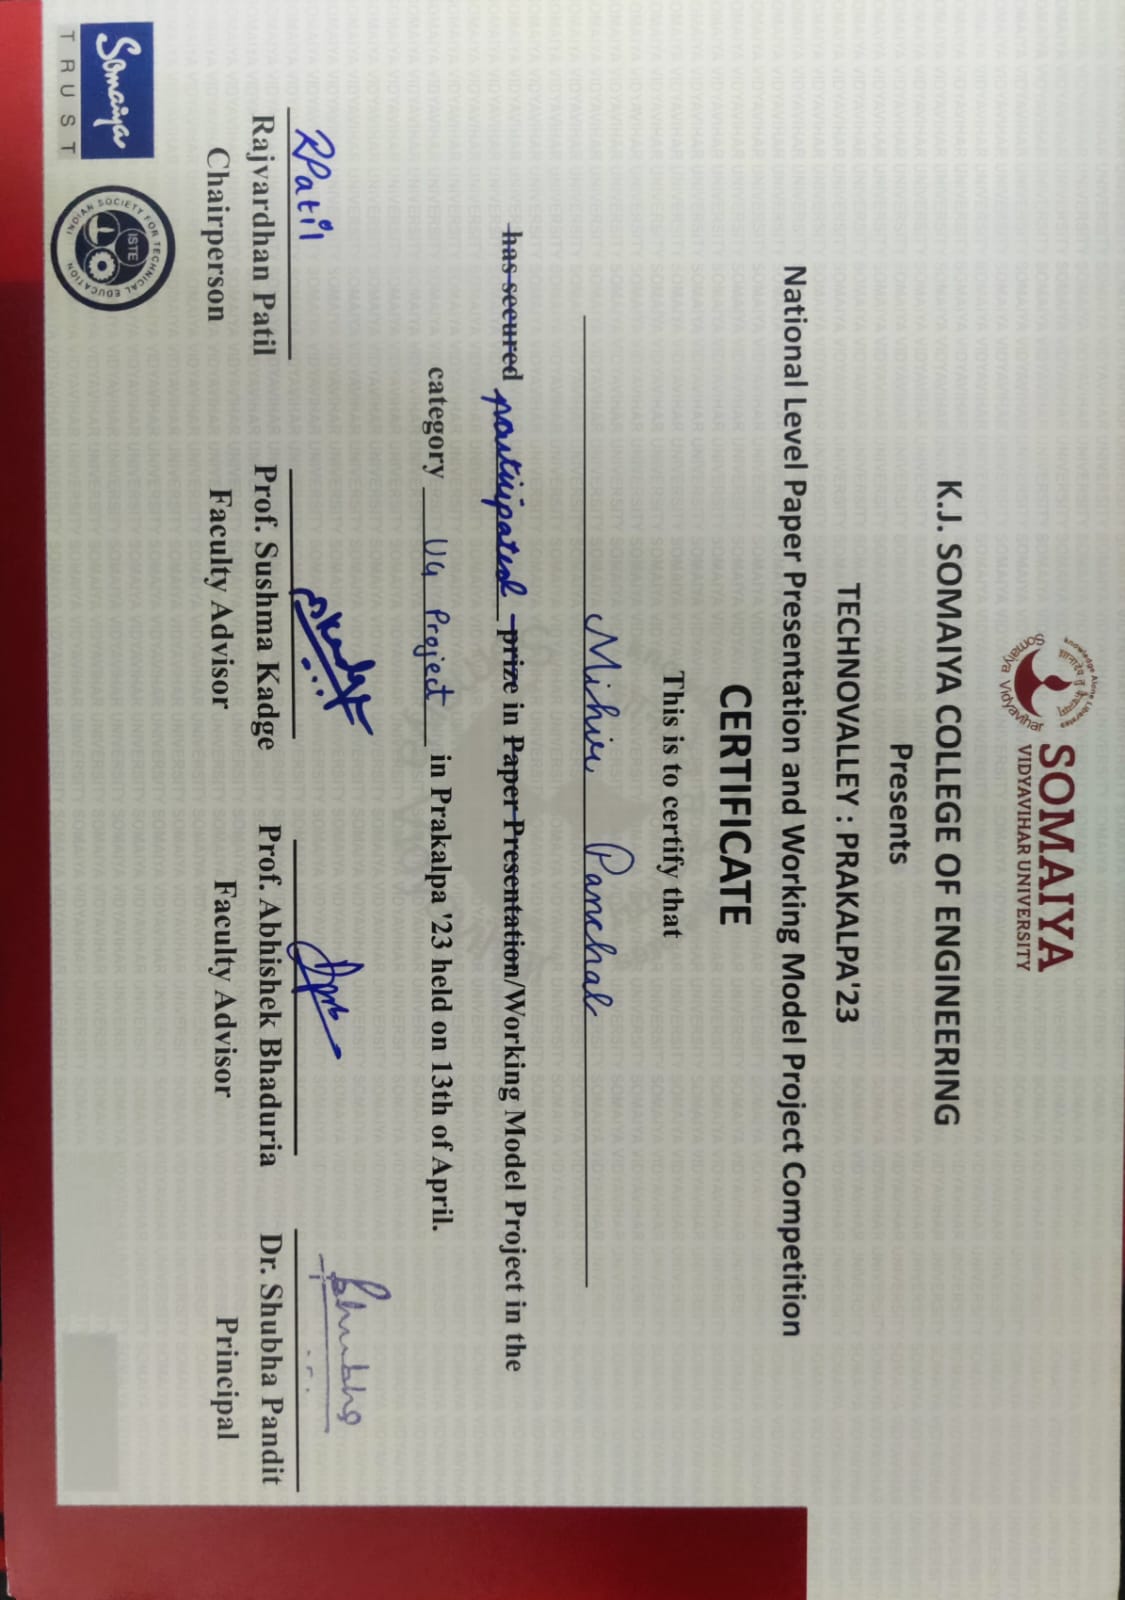 Knowledge Alone Liberates
Somaiya Vidyavihar
SOMAIYA
VIDYAVIHAR UNIVERSITY
K.J. SOMAIYA COLLEGE OF ENGINEERING
Presents
TECHNOVALLEY : PRAKALPA'23
National Level Paper Presentation and Working Model Project Competition
CERTIFICATE
This is to certify that
Mihir Panchal
has secured participated prize in Paper Presentation/Working Model Project in the
category UG Project in Prakalpa '23 held on 13th of April.
RPatil
Rajvardhan Patil
Prof. Sushma Kadge
Prof. Abhishek Bhaduria
Dr. Shubha Pandit
Chairperson
Faculty Advisor
Faculty Advisor
Principal
Somaiya
TRUST
INDIAN SOCIETY FOR TECHNICAL EDUCATION
ISTE